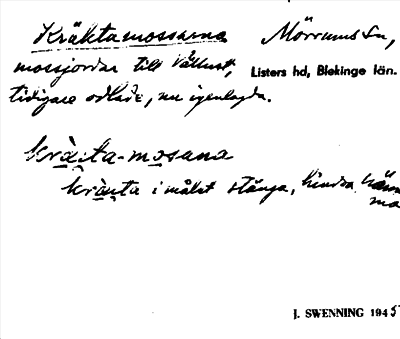 Kräktamossarna Mörrums sn,
mossjordar till Vällust, Listers hd, Blekinge län.
tidigare odlade, nu igenlagda.
kräkta-mosana
kräkta i målet stänga, hindra
J. SWENNING 1945